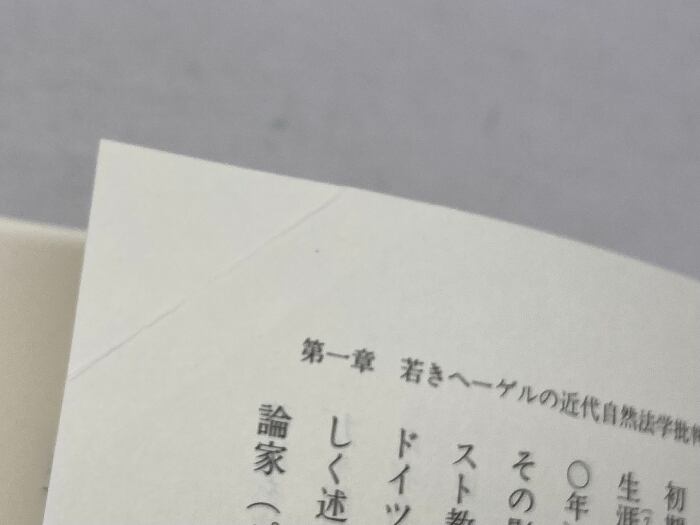 第一章 若きヘーゲルの近代自然法学批
初
生涯
〇年
その
スト教
ドイツ
しく述
論家（